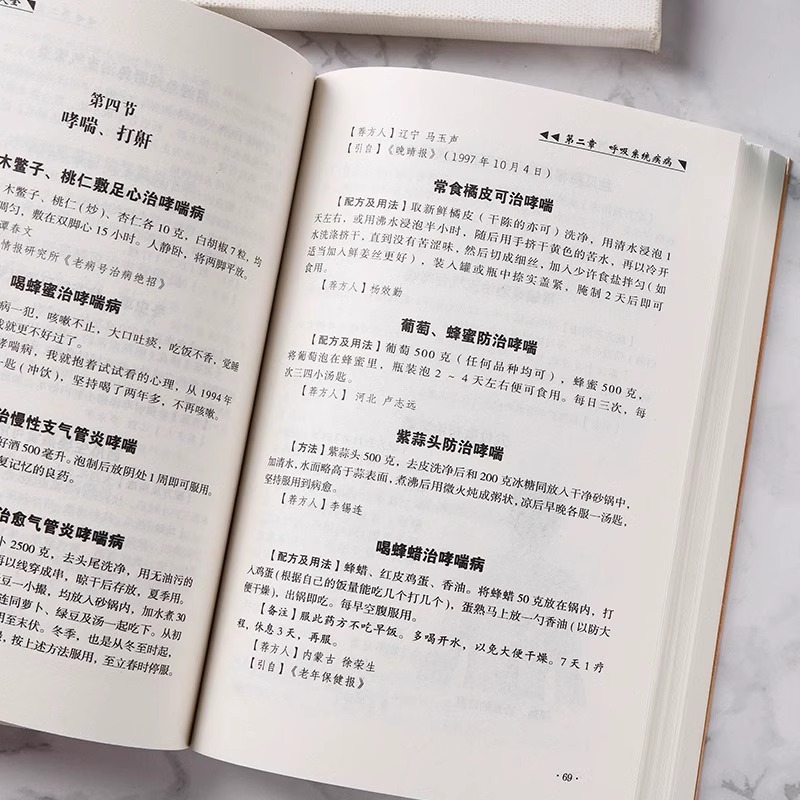 大全
第四节
哮喘、打鼾
木鳖子、桃仁敷足心治哮喘病
木鳖子、桃仁（炒）、杏仁各10克，白胡椒7粒，均
调匀，敷在双脚心15小时。人静卧，将两脚平放。
谭春文
情报研究所《老病号治病绝招》
喝蜂蜜治哮喘病
病一犯，咳嗽不止，大口吐痰，吃饭不香，觉睡
我就更不好过了。
哮喘病，我就抱着试试看的心理，从1994年
匙（冲饮），坚持喝了两年多，不再咳嗽。
治慢性支气管炎哮喘
好酒500毫升。泡制后放阴处1周即可服用。
复记忆的良药。
治愈气管炎哮喘病
2500克，去头尾洗净，用无油污的
再以线穿成串，晾干后存放，夏季用。
豆一小撮，均放入砂锅内，加水煮30
连同萝卜、绿豆及汤一起吃下。从初
用至末伏。冬季，也是从冬至时起，
，按上述方法服用，至立春时停服。
第二章 呼吸系统疾病
【荐方人】辽宁 马玉声
【引自】《晚晴报》（1997年10月4日）
常食橘皮可治哮喘
【配方及用法】取新鲜橘皮（干陈的亦可）洗净，用清水浸泡1
天左右，或用沸水浸泡半小时，随后用手挤干黄色的苦水，再以冷开
水洗涤挤干，直到没有苦涩味，然后切成细丝，加入少许食盐拌匀（如
适当加入鲜姜丝更好），装入罐或瓶中捺实盖紧，腌制2天后即可
食用。
【荐方人】杨效勤
葡萄、蜂蜜防治哮喘
【配方及用法】葡萄500克（任何品种均可），蜂蜜500克，
将葡萄泡在蜂蜜里，瓶装泡2～4天左右便可食用。每日三次，每
次三四小汤匙。
【荐方人】河北 卢志远
紫蒜头防治哮喘
【方法】紫蒜头500克，去皮洗净后和200克冰糖同放入干净砂锅中，
加清水，水面略高于蒜表面，煮沸后用微火炖成粥状，凉后早晚各服一汤匙，
坚持服用到病愈。
【荐方人】李锡连
喝蜂蜡治哮喘病
【配方及用法】蜂蜡、红皮鸡蛋、香油。将蜂蜡50克放在锅内，打
入鸡蛋（根据自己的饭量能吃几个打几个），蛋熟马上放一勺香油（以防大
便干燥），出锅即吃。每早空腹服用。
【备注】服此药方不吃早饭。多喝开水，以免大便干燥。7天1疗
程，休息3天，再服。
【荐方人】内蒙古 徐荣生
【引自】《老年保健报》
·69·